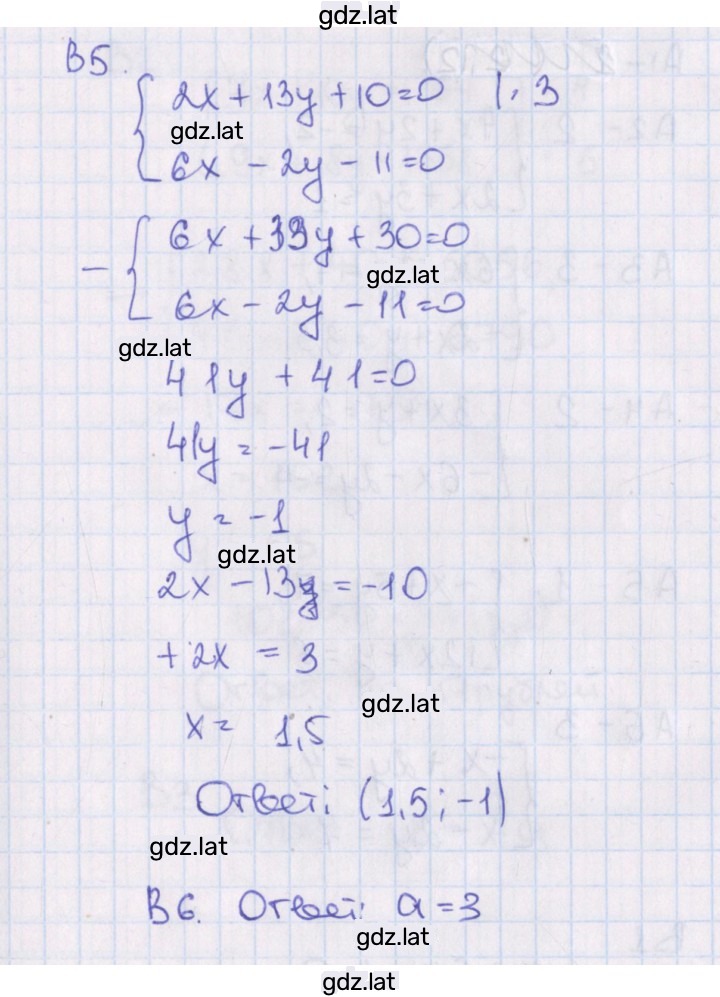 gdz.lat
В5.
2x + 13y + 10 = 0 | · 3
gdz.lat
6x - 2y - 11 = 0
6x + 39y + 30 = 0
gdz.lat
6x - 2y - 11 = 0
gdz.lat
41y + 41 = 0
41y = -41
y = -1
gdz.lat
2x - 13 = -10
+ 2x = 3
gdz.lat
x = 1,5
Ответ: (1,5; -1)
gdz.lat
В6. Ответ: a = 3
gdz.lat
gdz.lat